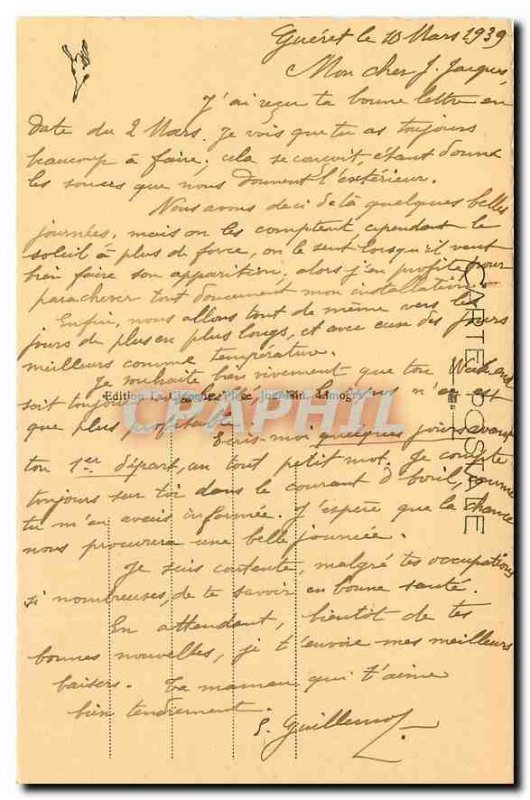 Guéret le 10 Mars 1939
Mon cher J. Jacques,
J'ai reçu ta bonne lettre en
date du 2 Mars. Je vois que tu as toujours
beaucoup à faire; cela se conçoit, étant donné
les soucis que nous donnent l'extérieur.
Nous avons deci delà quelques belles
journées, mais on les comptent, cependant le
soleil à plus de force, on le sent lorsqu'il veut
bien faire son apparition, alors j'en profite pour
parachever tout doucement mon installation.
Enfin, nous allons tout de même vers les
jours de plus en plus longs, et avec eux des jours
meilleurs comme température.
Je souhaite bien vivement que ton Week-end
soit toujours le temps n'en est
que plus profitable.
Ecris-moi quelques jours avant
ton 1er départ, un tout petit mot. Je compte
toujours sur toi dans le courant d'Avril, comme
tu m'en avais informée. J'espère que la chance
nous procurera une belle journée.
Je suis contente, malgré tes occupations
si nombreuses, de te savoir en bonne santé.
En attendant, bientôt de tes
bonnes nouvelles, je t'envoie mes meilleurs
baisers. Ta maman qui t'aime
bien tendrement.
S. Guillemot
CARTE POSTALE
Edition La Cigogne, Place Jourdan, Limoges
CPAPHIL